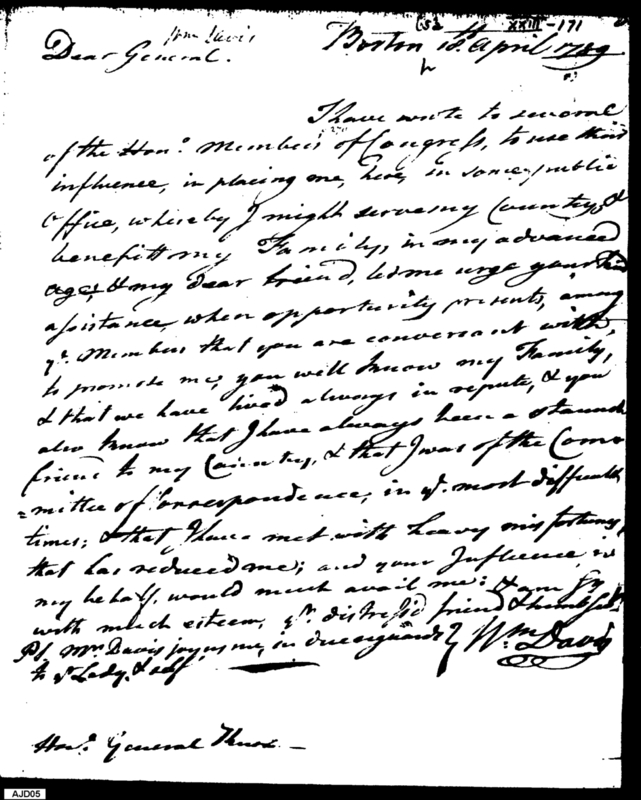 (52 XXIII-171
Wm Davis
Boston 18 April 1789
Dear General.
I have wrote to several
of the Hono. Members of Congress, to use their
influence, in placing me, here, in some public
Office, whereby I might serve my Country, &
benefitt my Family, in my advanced
age; & my dear friend, let me urge your kind
assistance, when opportunity presents, among
ye. Members that you are conversant with,
to promote me, you well know my Family,
& that we have lived always in repute, & you
also know that I have always been a staunch
friend to my Country, & that I was of the Com
=mittee of Correspondence, in ye. most difficult
times; & that I have met with heavy misfortunes,
that has reduced me; and your Influence, in
my behalf, would much avail me: & am Sr
with much esteem, yr. distress'd friend & humb Sert.
PS Mrs Davis joins me, in due regards
to yr Lady, & self
Wm Davis
Honl. General Knox
AJD05